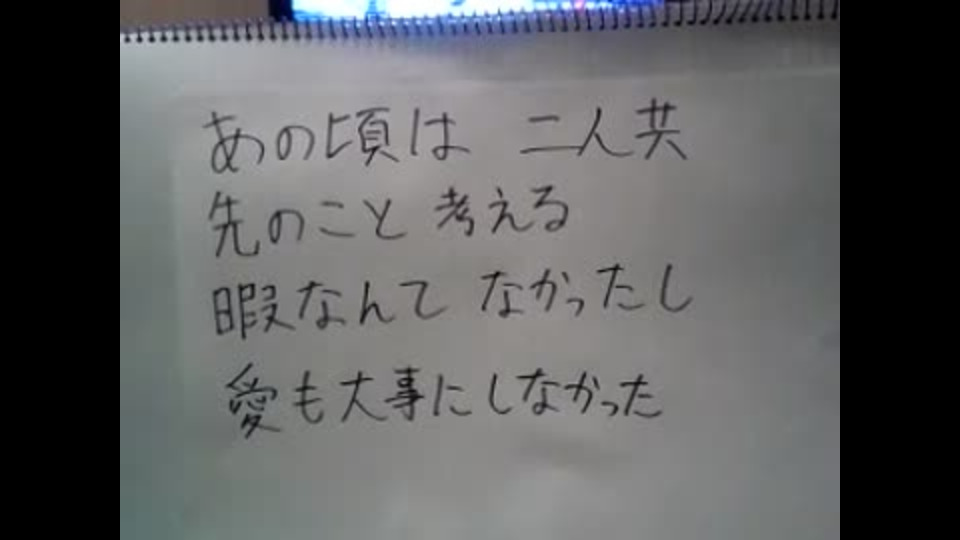 あの頃は 二人共
先のこと 考える
暇なんて なかったし
愛も大事にしなかった